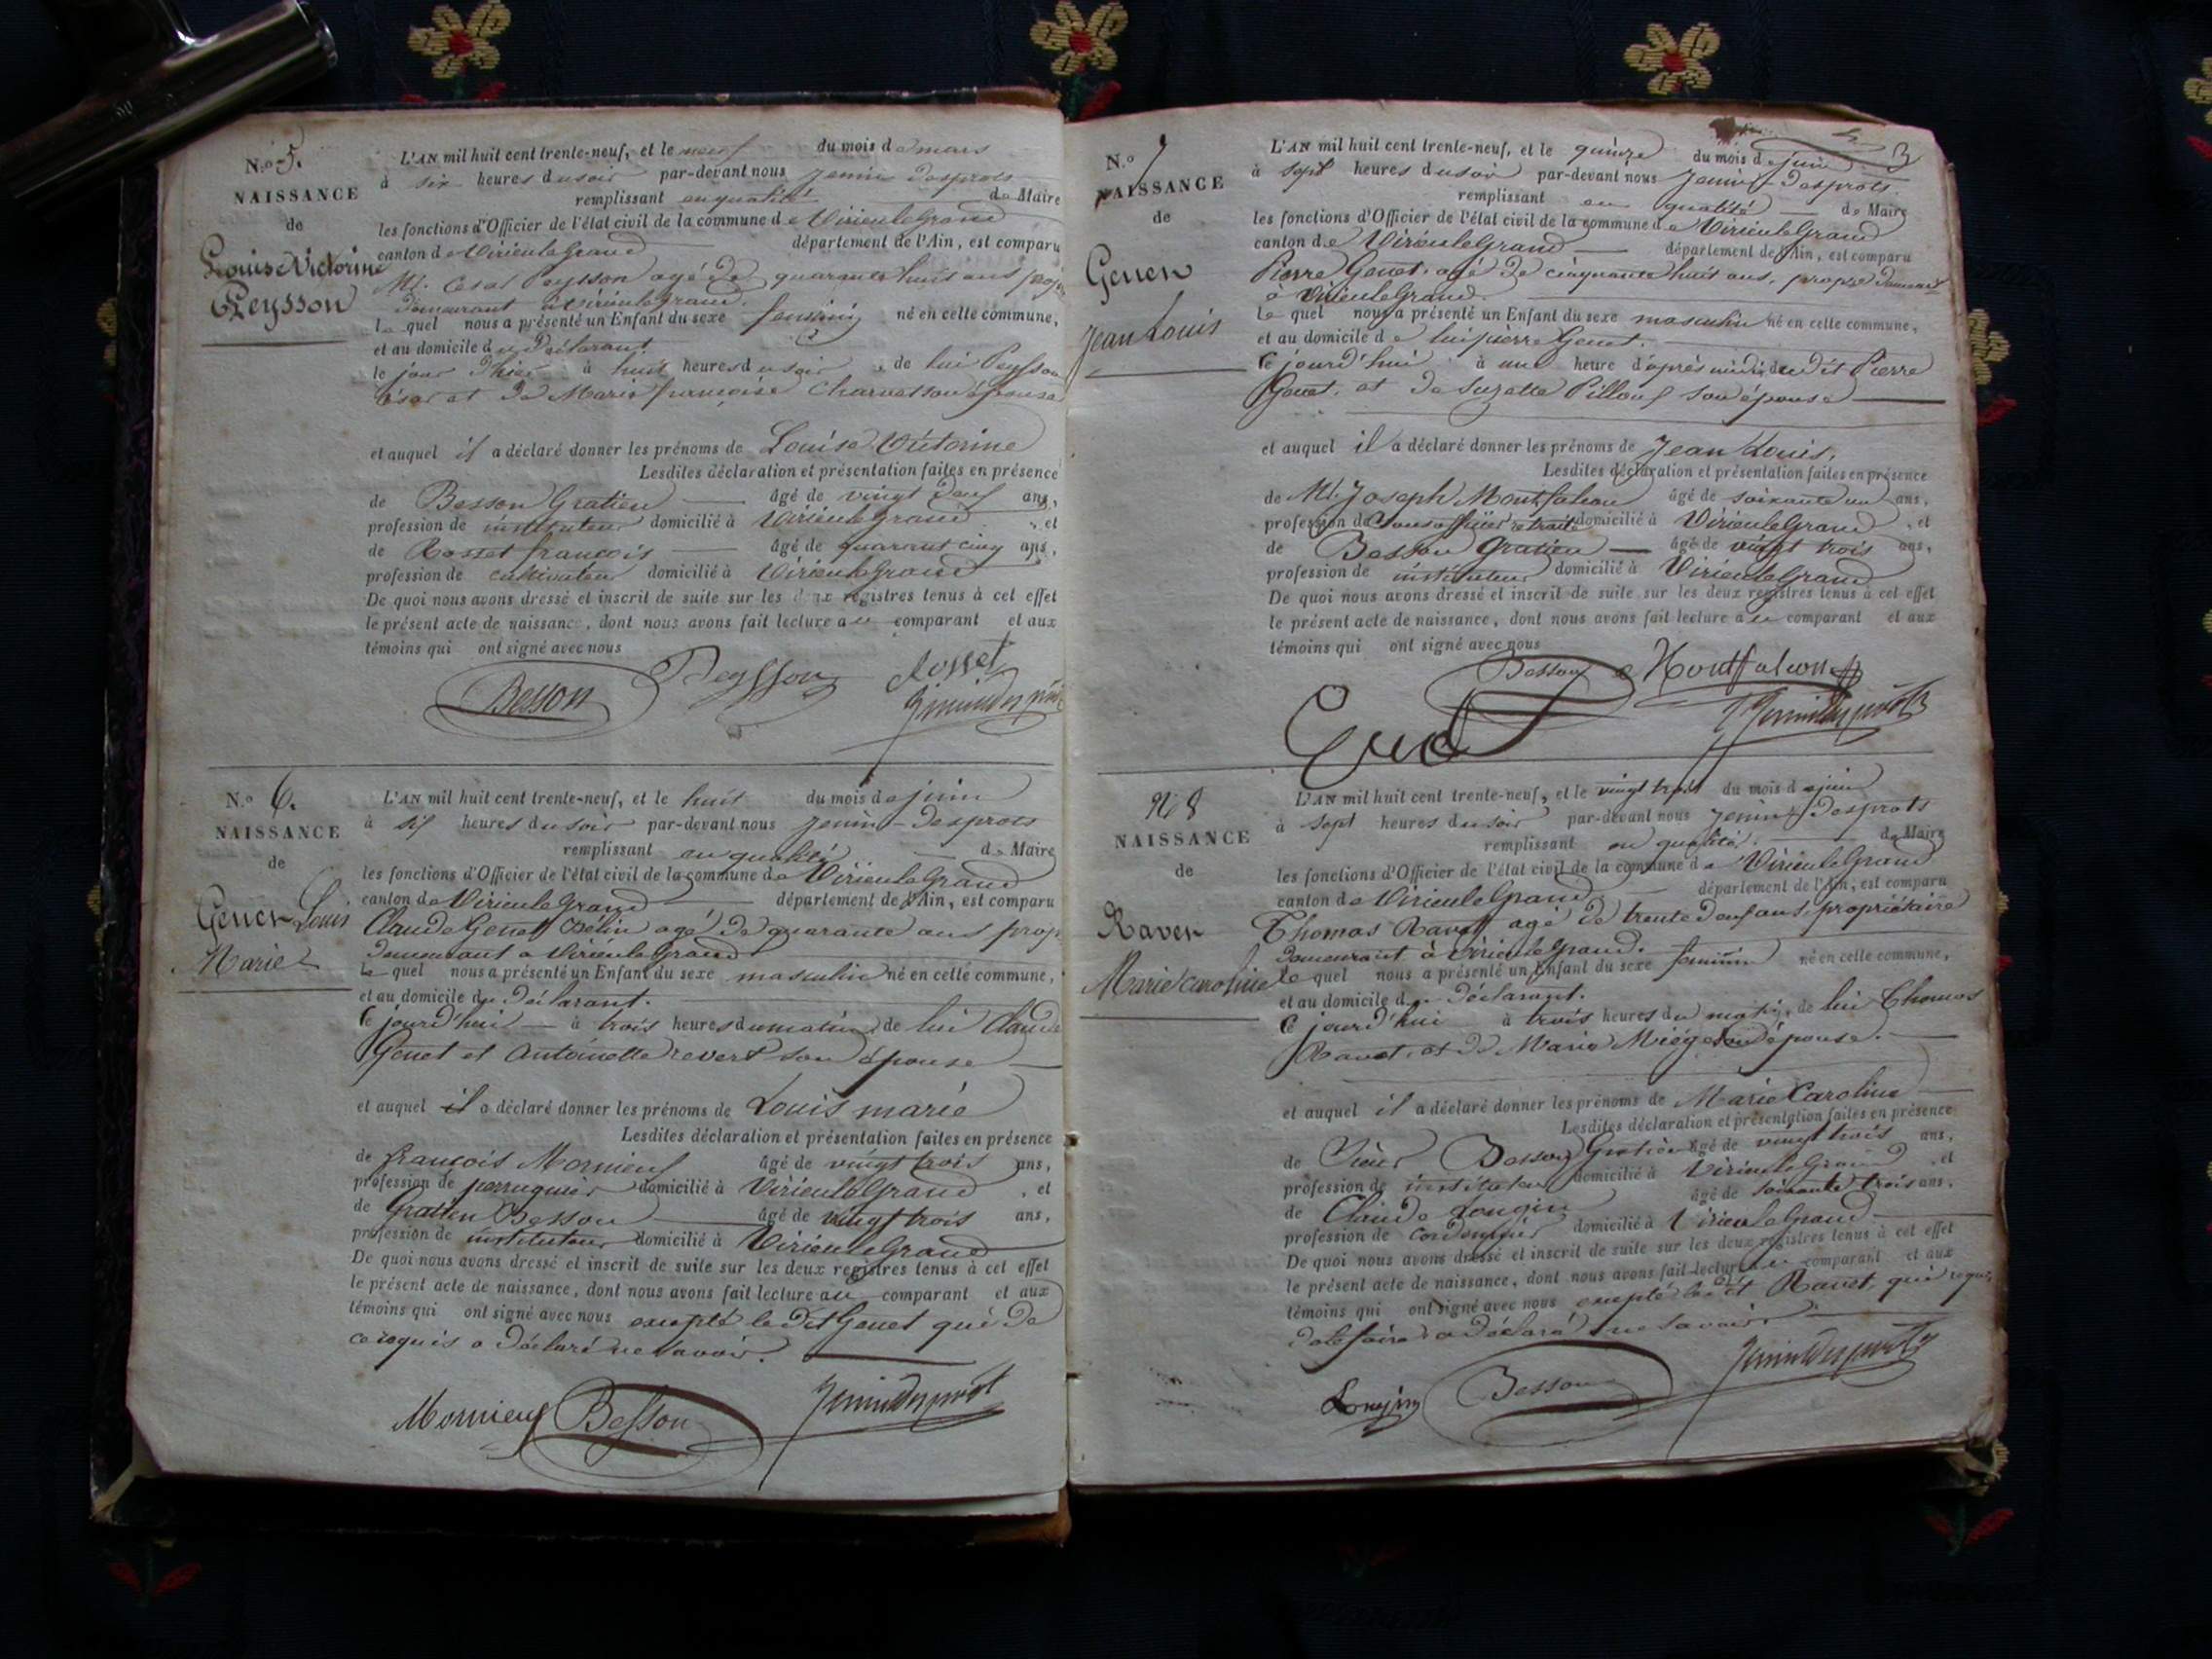 N.o 5.
NAISSANCE
de
Louise Victorine
Peysson
L'AN mil huit cent trente-neuf, et le neuf du mois de mars
à six heures du soir par-devant nous Jenin Desprots
remplissant en qualité de Maire
les fonctions d'Officier de l'état civil de la commune de Virieu le Grand
canton de Virieu le Grand département de l'Ain, est comparu
M. César Peysson agé de quarante huit ans prop
demeurant à Virieu le grand.
le quel nous a présenté un Enfant du sexe féminin né en cette commune,
et au domicile du Déclarant
le jour d'hier à huit heures du soir, de lui Peysson
César et de Marie françoise Charvet son épouse
et auquel il a déclaré donner les prénoms de Louise Victorine
Lesdites déclaration et présentation faites en présence
de Besson Gratien âgé de vingt deux ans,
profession de instituteur domicilié à Virieu le grand, et
de Rosset françois âgé de quarant cinq ans,
profession de cultivateur domicilié à Virieu le Grand
De quoi nous avons dressé et inscrit de suite sur les deux registres tenus à cet effet
le présent acte de naissance, dont nous avons fait lecture au comparant et aux
témoins qui ont signé avec nous
Besson Peysson Rosset
Jenin Desprots
N.o 6.
NAISSANCE
de
Genet Louis
Marie
L'AN mil huit cent trente-neuf, et le huit du mois de juin
à six heures du soir par-devant nous Jenin-Desprots
remplissant en qualité de Maire
les fonctions d'Officier de l'état civil de la commune de Virieu le Grand
canton de Virieu le Grand département de l'Ain, est comparu
Claude Genet Belin agé de quarante ans prop
demeurant a Virieu le Grand
le quel nous a présenté un Enfant du sexe masculin né en cette commune,
et au domicile du Déclarant.
Ce jourd'hui à trois heures du matin, de lui Claude
Genet et Antoinette revert son épouse
et auquel il a déclaré donner les prénoms de Louis marie
Lesdites déclaration et présentation faites en présence
de françois Mornieux âgé de vingt trois ans,
profession de perruquier domicilié à Virieu le Grand, et
de Gratien Besson âgé de vingt trois ans,
profession de instituteur domicilié à Virieu le Grand
De quoi nous avons dressé et inscrit de suite sur les deux registres tenus à cet effet
le présent acte de naissance, dont nous avons fait lecture au comparant et aux
témoins qui ont signé avec nous excepté le dit Genet qui de
ce requis a déclaré ne savoir.
Mornieux Besson Jenin Desprots
N.o 7
NAISSANCE
de
Genet
Jean Louis
L'AN mil huit cent trente-neuf, et le quinze du mois de juin
à sept heures du soir par-devant nous Jenin-Desprots
remplissant en qualité de Maire
les fonctions d'Officier de l'état civil de la commune de Virieu le Grand
canton de Virieu le Grand département de l'Ain, est comparu
Pierre Genet. agé de cinquante huit ans, propre demeurt
à Virieu le Grand.
le quel nous a présenté un Enfant du sexe masculin né en cette commune,
et au domicile de lui pierre Genet.
Ce jourd'hui à une heure d'après midi, dudit Pierre
Genet, et de Suzette Pilloux son épouse
et auquel il a déclaré donner les prénoms de Jean Louis.
Lesdites déclaration et présentation faites en présence
de M. Joseph Montfalcon âgé de soixante un ans,
profession de sous officier retraité domicilié à Virieu le Grand, et
de Besson Gratien âgé de vingt trois ans,
profession de instituteur domicilié à Virieu le Grand
De quoi nous avons dressé et inscrit de suite sur les deux registres tenus à cet effet
le présent acte de naissance, dont nous avons fait lecture au comparant et aux
témoins qui ont signé avec nous
Besson Montfalcon
Jenin Desprots
N.o 8
NAISSANCE
de
Ravet
Marie Caroline
L'AN mil huit cent trente-neuf, et le vingt trois du mois de juin
à sept heures du soir par-devant nous Jenin Desprots
remplissant en qualité de Maire
les fonctions d'Officier de l'état civil de la commune de Virieu le Grand
canton de Virieu le Grand département de l'Ain, est comparu
Thomas Ravet agé de trente deux ans, propriétaire
demeurant à Virieu le Grand.
le quel nous a présenté un Enfant du sexe féminin né en cette commune,
et au domicile du déclarant.
Ce jourd'hui à trois heures du matin, de lui Thomas
Ravet, et de Marie Miège son épouse.
et auquel il a déclaré donner les prénoms de Marie Caroline
Lesdites déclaration et présentation faites en présence
de Sieur Besson Gratien âgé de vingt trois ans,
profession de instituteur domicilié à Virieu le Grand, et
de Claude Longin âgé de soixante trois ans,
profession de cordonnier domicilié à Virieu le Grand
De quoi nous avons dressé et inscrit de suite sur les deux registres tenus à cet effet
le présent acte de naissance, dont nous avons fait lecture au comparant et aux
témoins qui ont signé avec nous excepté le dit Ravet, qui requis
de le faire a déclaré ne savoir.
Longin Besson Jenin Desprots